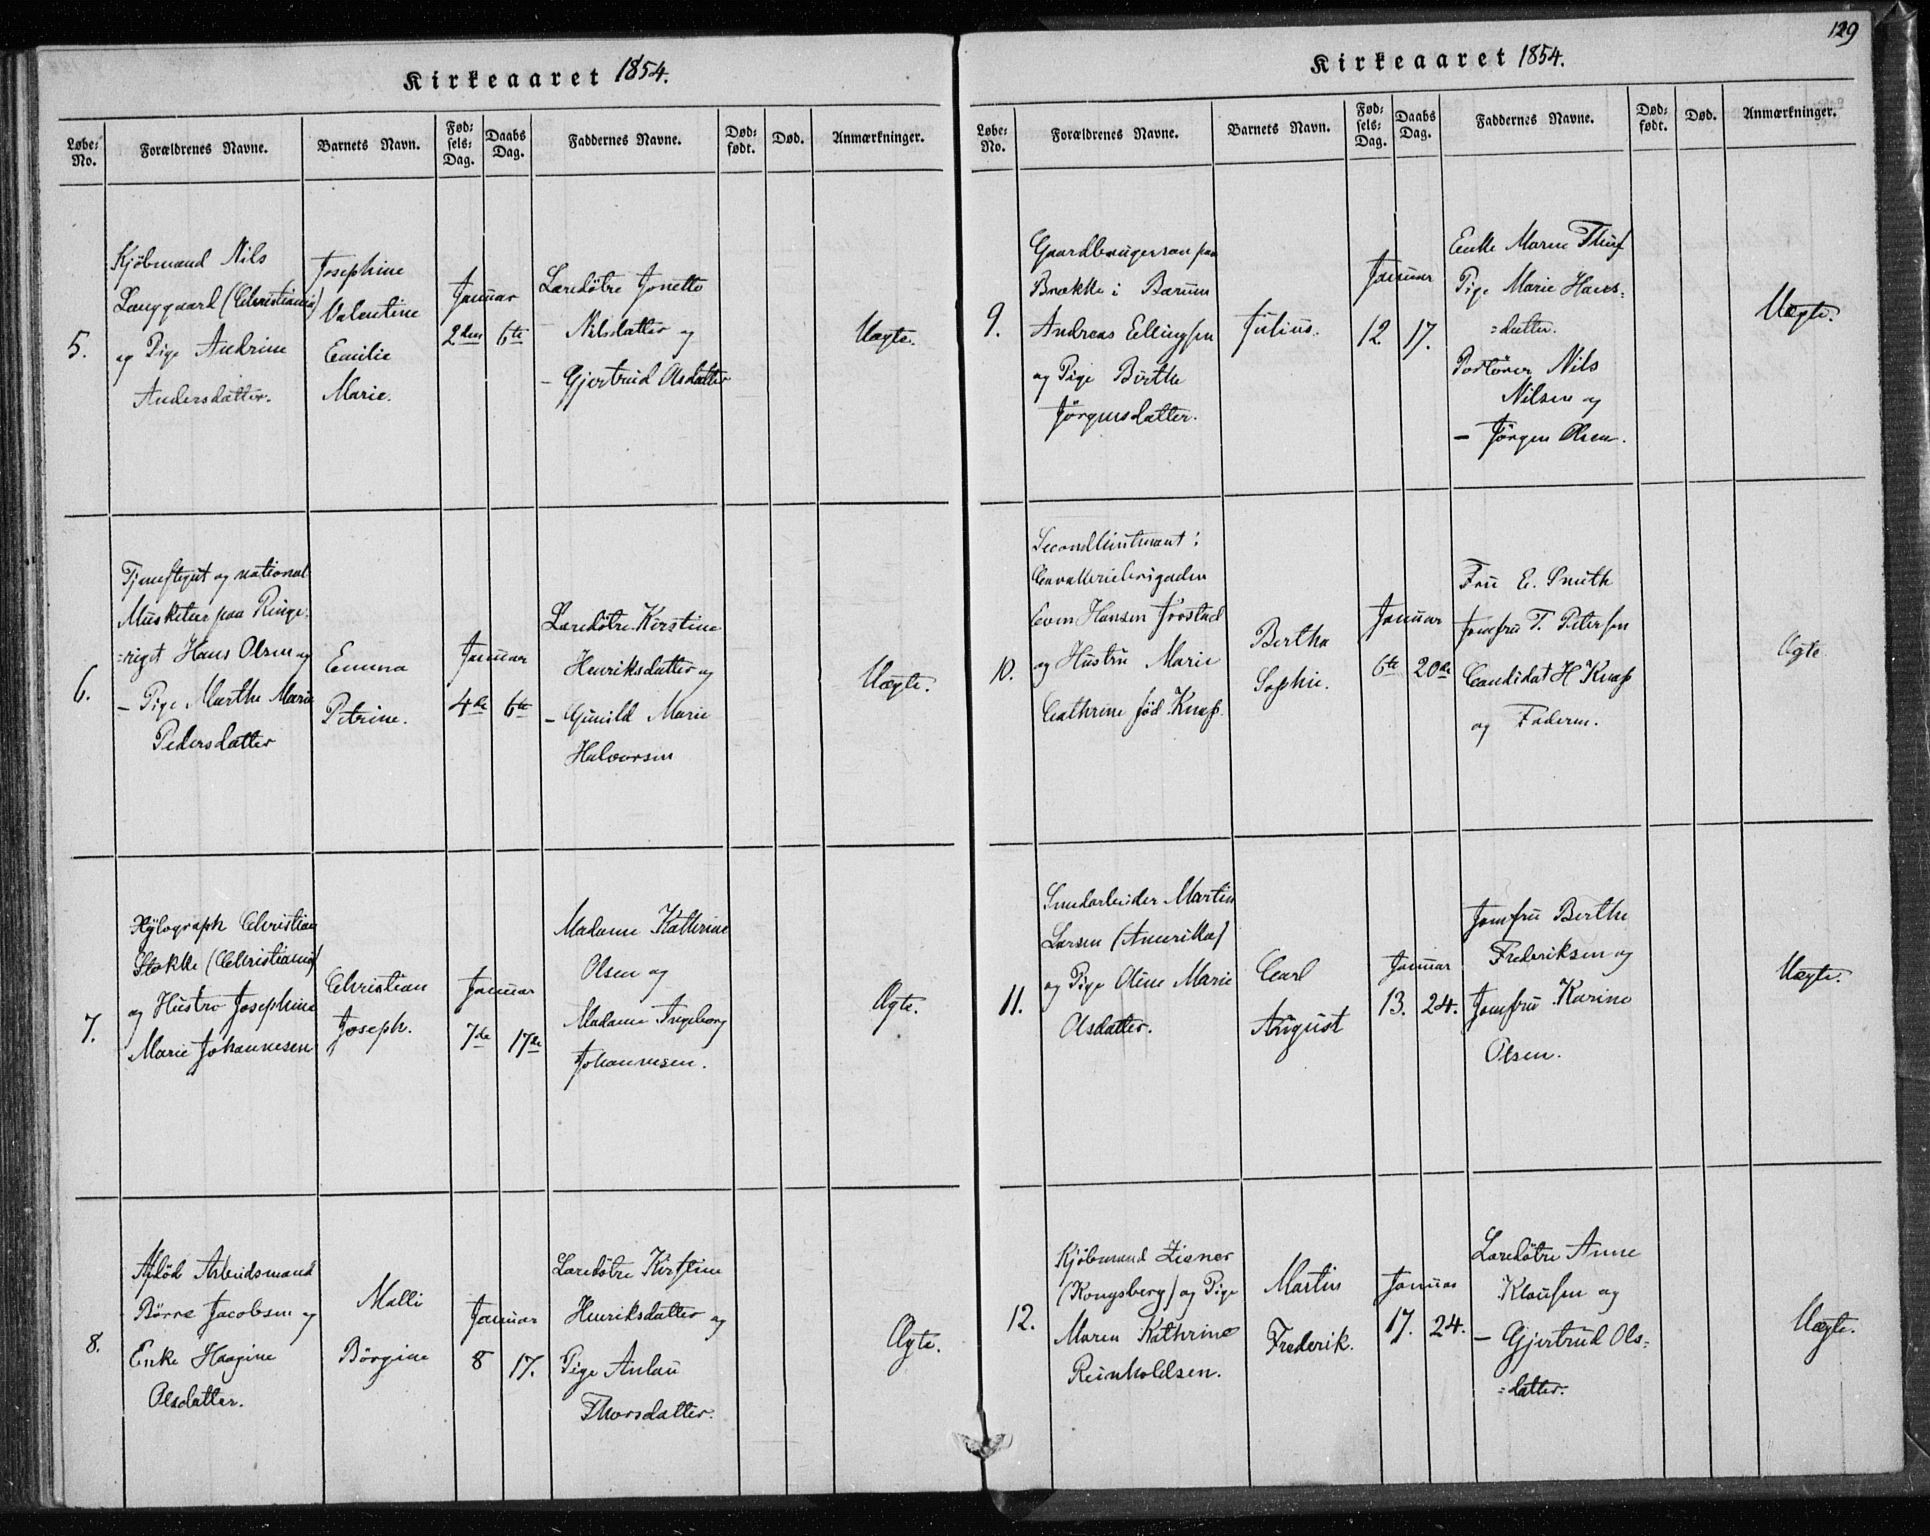 Kirkeaaret 1854.
Løbe-No.
Forældrenes Navne.
Barnets Navn.
Fød-sels-Dag.
Daabs Dag.
Faddernes Navne.
Død-født.
Død.
Anmærkninger.
5.
Kjöbmand Nils
Langgaard (Christiania)
og Pige Andrine
Andersdatter.
Josephine
Valentine
Emilie
Marie.
Januar
2den 6te
Læredötre Jonette
Nilsdatter og
— Gjertrud Olsdatter
Uægte.
6.
Tjenestegut og national
Musketeer paa Ringe-
=riget Hans Olsen og
— Pige Marthe Marie
Pedersdatter
Emma
Petrine.
Januar
4de 6te
Læredötre Kirstine
Henriksdatter og
— Gunild Marie
Halvorsen
Uægte.
7.
Xÿlograph Christian
Stokke (Christiania)
og Hustro Josephine
Marie Johannesen
Christian
Joseph.
Januar
7de 17de
Madame Kathrine
Olsen og
Madame Ingeborg
Johannesen.
Ægte.
8.
Afdöd Arbeidsmand
Börre Jacobsen og
Enke Haagine
Olsdatter.
Malli
Börgine
Januar
8 17.
Læredötre Kirstine
Henriksdatter og
Pige Anlau
Thorsdatter.
Ægte.
129
Kirkeaaret 1854.
Løbe-No.
Forældrenes Navne.
Barnets Navn.
Fød-sels-Dag.
Daabs Dag.
Faddernes Navne.
Død-født.
Død.
Anmærkninger.
9.
Gaardbrugersön paa
Brække i Bærum
Andreas Ellingsen
og Pige Birthe
Jörgensdatter.
Julius.
Januar
12 17.
Enke Maren
Pige Marie Hans-
=datter.
Portörer Nils
Nilsen og
— Jörgen Olsen.
Uægte.
10.
Secondlieutnant i
Cavalleribrigaden
Even Hansen
og Hustru Marie
Cathrine föd Knap.
Bertha
Sophie.
Januar
6te 20de
Fru E. Smith
Jomfru T. Petersen
Candidat H Knap
og Faderen.
Ægte
11.
Smedarbeider Martin
Larsen (Amerika)
og Pige Oline Marie
Olsdatter.
Carl
August
Januar
13. 24.
Jomfru Berthe
Frederiksen og
Jomfru Karine
Olsen.
Uægte.
12.
Kjöbmand Zisner
(Kongsberg) og Pige
Maren Kathrine
Reinholdsen.
Martin
Frederik.
Januar
17. 24.
Læredötre Anne
Klausen og
— Gjertrud Ols-
=datter.
Uægte.